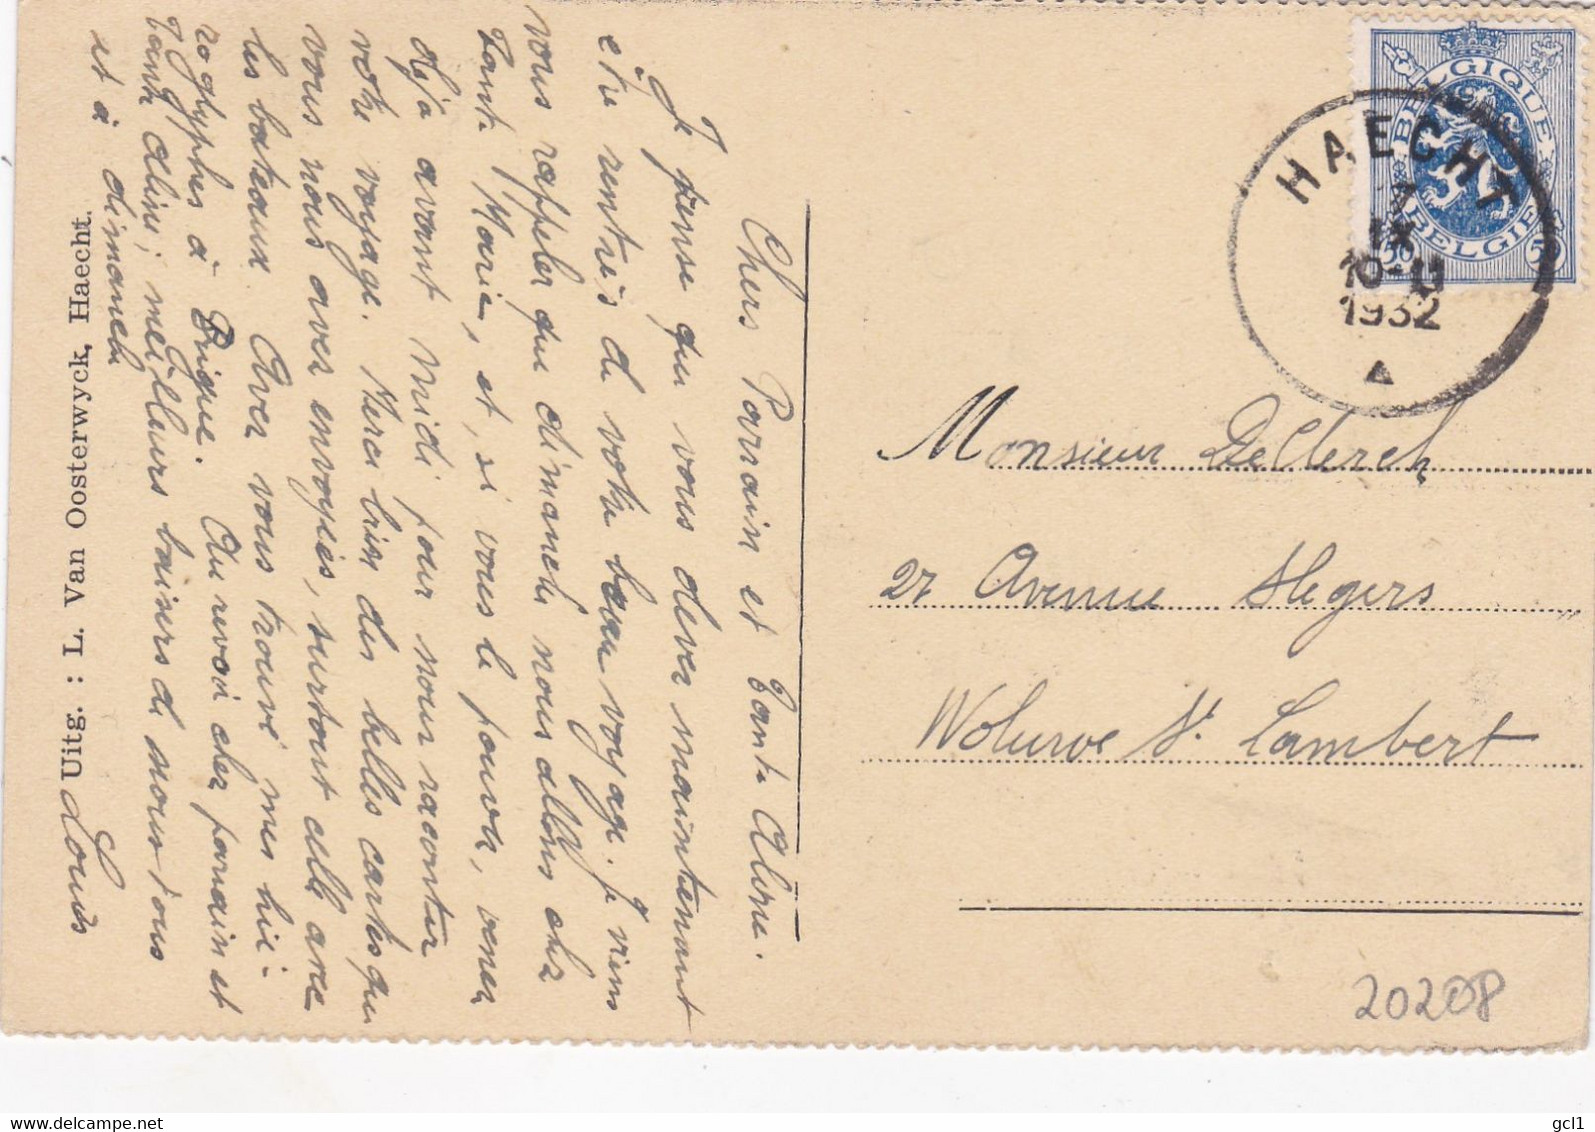 Chers Parrain et Tante Aline.
Je pense que vous devez maintenant
être rentrés de votre beau voyage. Je viens
vous rappeler que dimanche nous allons chez
Tante Marie, et, si vous le pouvez, venez
déjà avant midi pour nous raconter
votre voyage. Merci bien des belles cartes que
vous nous avez envoyées, surtout celle avec
les bateaux. Avez vous trouvé mes hié-
roglyphes à Brigue. Au revoir cher parrain et
tante Aline; meilleurs baisers de nous tous
et à dimanche
Louis
Uitg. : L. Van Oosterwyck, Haecht.
BELGIQUE
BELGIE
50 50
HAECHT
1
IX
10-11
1932
Monsieur De Clerck
27 Avenue Slegers
Woluwe St. Lambert
20208
www.delcampe.net
gcl1